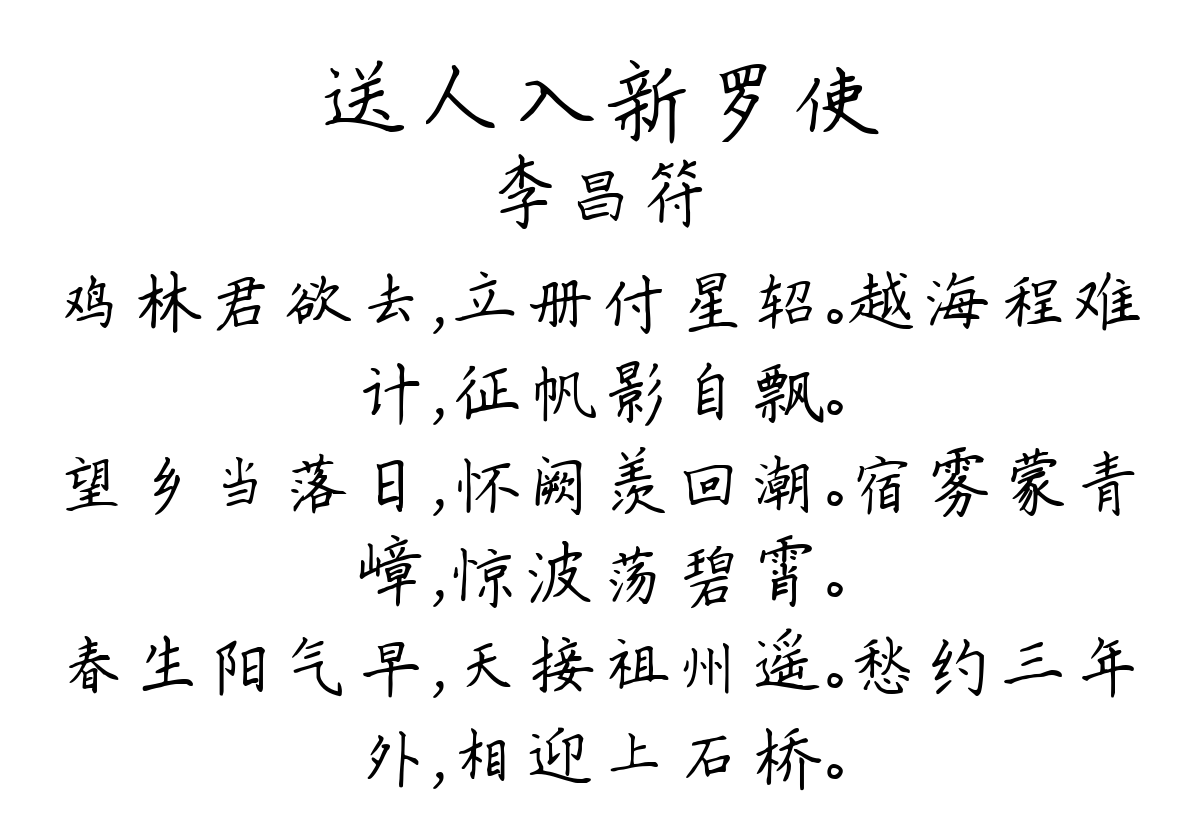 送人入新罗使
李昌符
鸡林君欲去,立册付星轺。越海程难
计,征帆影自飘。
望乡当落日,怀阙羡回潮。宿雾蒙青
嶂,惊波荡碧霄。
春生阳气早,天接祖州遥。愁约三年
外,相迎上石桥。